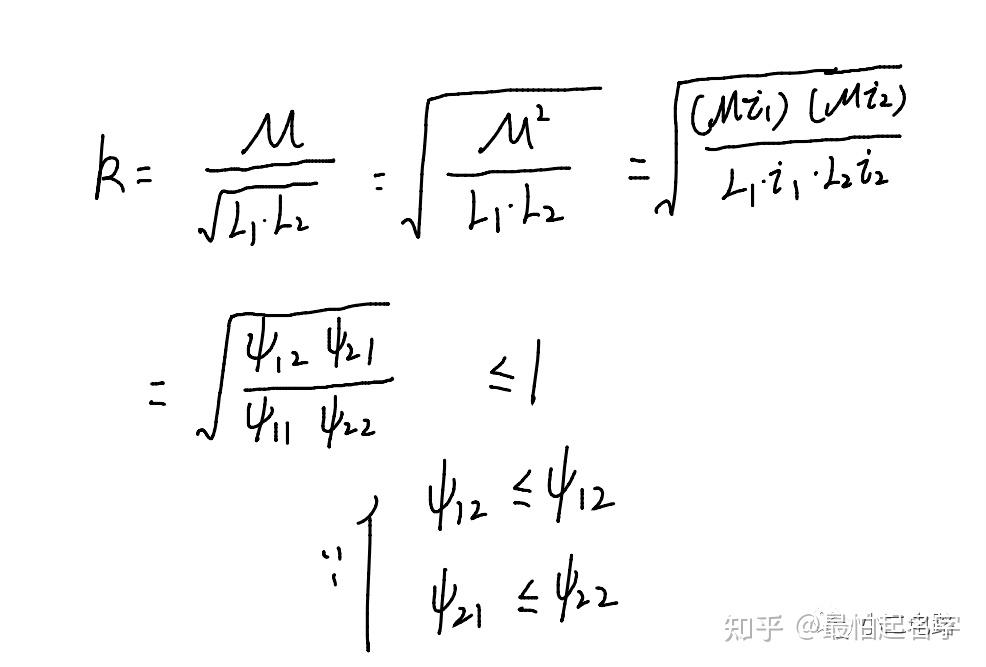 k = M / √(L₁·L₂) = √(M² / (L₁·L₂)) = √((Mi₁) (Mi₂) / (L₁·i₁·L₂i₂))
= √(ψ₁₂ ψ₂₁ / (ψ₁₁ ψ₂₂)) ≤ 1
∵ { ψ₁₂ ≤ ψ₁₂
ψ₂₁ ≤ ψ₂₂
知乎 @最怕起名字